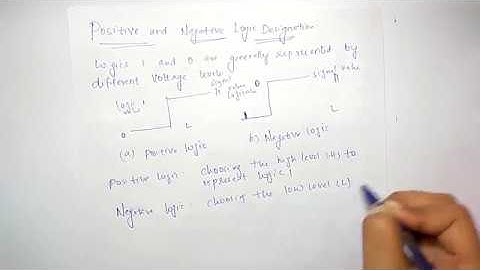 Positive and Negative Logic Designation
Logics 1 and 0 are generally represented by
different voltage levels
Logic signal value 0 signal value
1 H logic value H
0 L 1 L
(a) Positive Logic b) Negative Logic
Positive logic: choosing the high level (H) to
represent logic 1
Negative logic: choosing the low level (L)